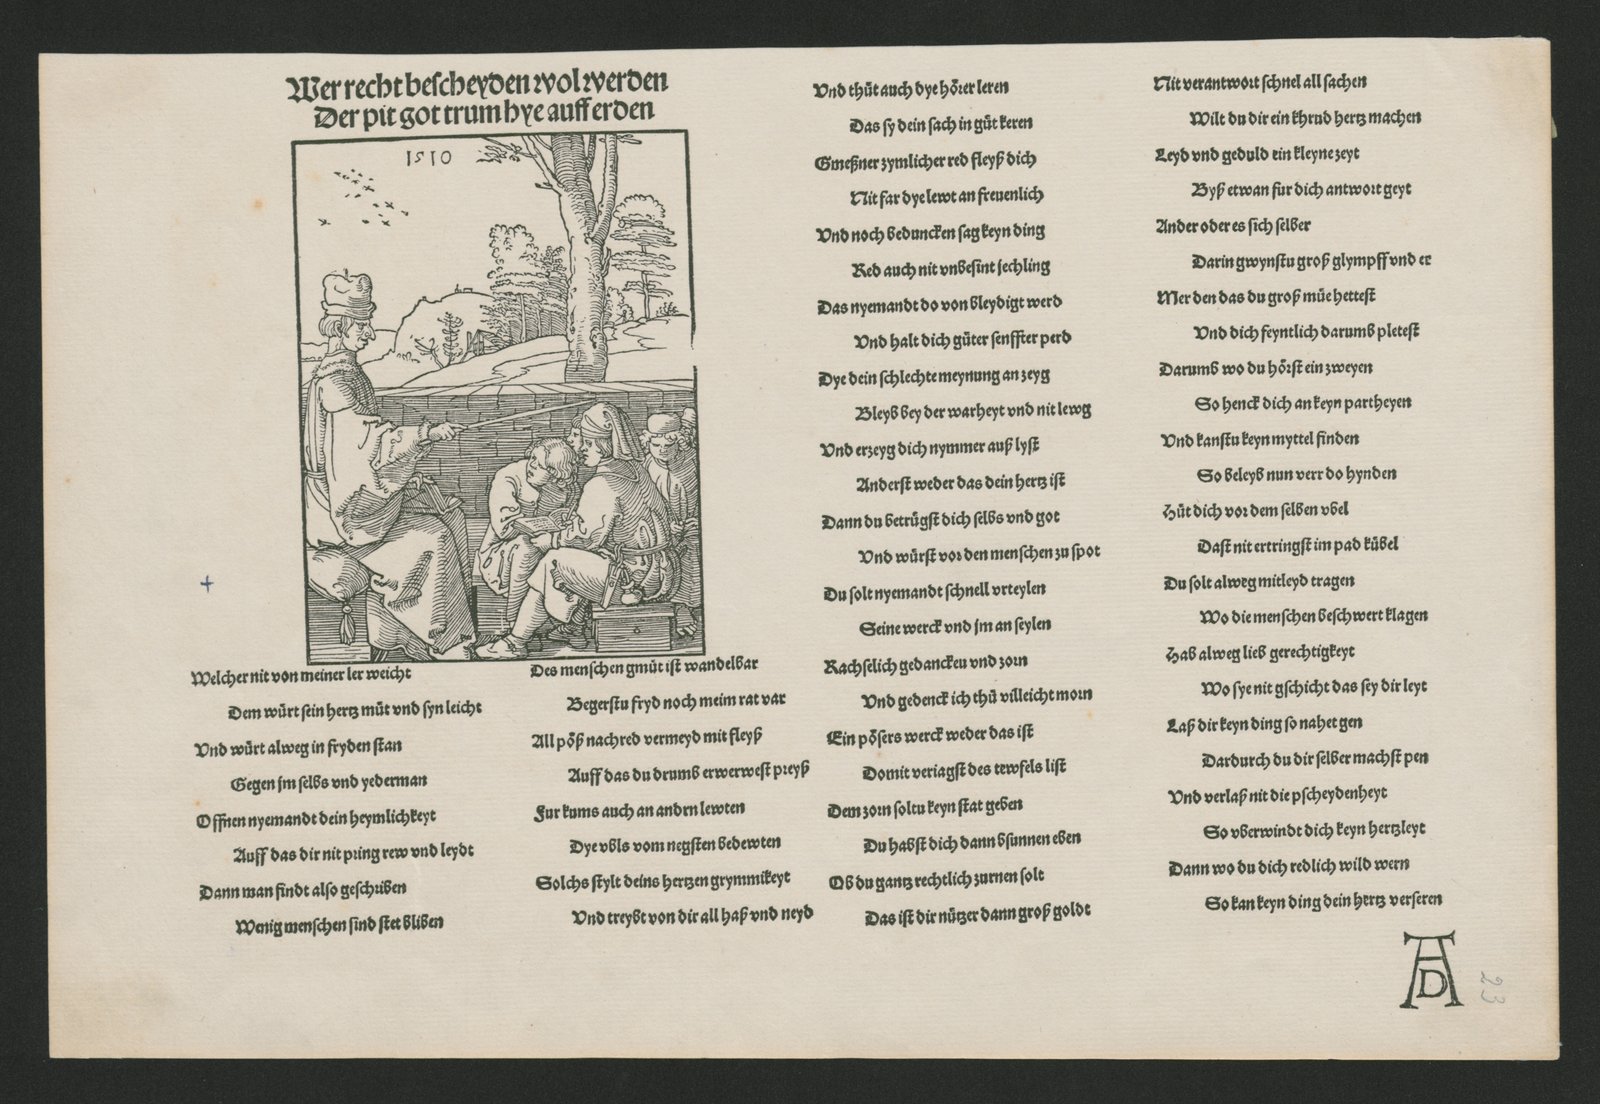 Wer recht bescheyden wol werden
Der pit got trum hye auff erden
1510
Welcher nit von meiner ler weicht
Dem würt sein hertz müt vnd syn leicht
Vnd würt alweg in fryden stan
Gegen jm selbs vnd yederman
Offnen nyemandt dein heymlichkeyt
Auff das dir nit pring rew vnd leydt
Dann man findt also geschriben
Wenig menschen sind stet bliben
Des menschen gmüt ist wandelbar
Begerstu fryd noch meim rat var
All põß nachred vermeyd mit fleyß
Auff das du drumb erwerwest preyß
Fur kums auch an andrn lewten
Dye vbls vom negsten bedewten
Solchs stylt deins hertzen grymmikeyt
Vnd treybt von dir all haß vnd neyd
Vnd thüt auch dye hõrer leren
Das sy dein sach in güt keren
Gmeßner zymlicher red fleyß dich
Nit far dye lewt an freuenlich
Vnd noch beduncken sag keyn ding
Red auch nit vnbesint jechling
Das nyemandt do von bleydigt werd
Vnd halt dich güter senffter perd
Dye dein schlechte meynung an zeyg
Bleyb bey der warheyt vnd nit lewg
Vnd erzeyg dich nymmer auß lyst
Anderst weder das dein hertz ist
Dann du betrügst dich selbs vnd got
Vnd würst vor den menschen zu spot
Du solt nyemandt schnell vrteylen
Seine werck vnd jm an feylen
Rachselich gedancken vnd zorn
Vnd gedenck ich thü villeicht morn
Ein põsers werck weder das ist
Domit veriagst des tewfels list
Dem zorn soltu keyn stat geben
Du habst dich dann bsunnen eben
Ob du gantz rechtlich zurnen solt
Das ist dir nützer dann groß goldt
Nit verantwort schnel all sachen
Wilt du dir ein khrud hertz machen
Leyd vnd geduld ein kleyne zeyt
Byß etwan fur dich antwort geyt
Ander oder es sich selber
Darin gwynstu groß glympff vnd er
Mer den das du groß müe hettest
Vnd dich feyntlich darumb pletest
Darumb wo du hõrst ein zweyen
So henck dich an keyn partheyen
Vnd kanstu keyn myttel finden
So beleyb nun verr do hynden
Hüt dich vor dem selben vbel
Dast nit ertringst im pad kübel
Du solt alweg mitleyd tragen
Wo die menschen beschwert klagen
Hab alweg lieb gerechtigkeyt
Wo sye nit gschicht das sey dir leyt
Laß dir keyn ding so nahet gen
Dardurch du dir selber machst pen
Vnd verlaß nit die pscheydenheyt
So vberwindt dich keyn hertzleyt
Dann wo du dich redlich wild wern
So kan keyn ding dein hertz verseren
AD
23